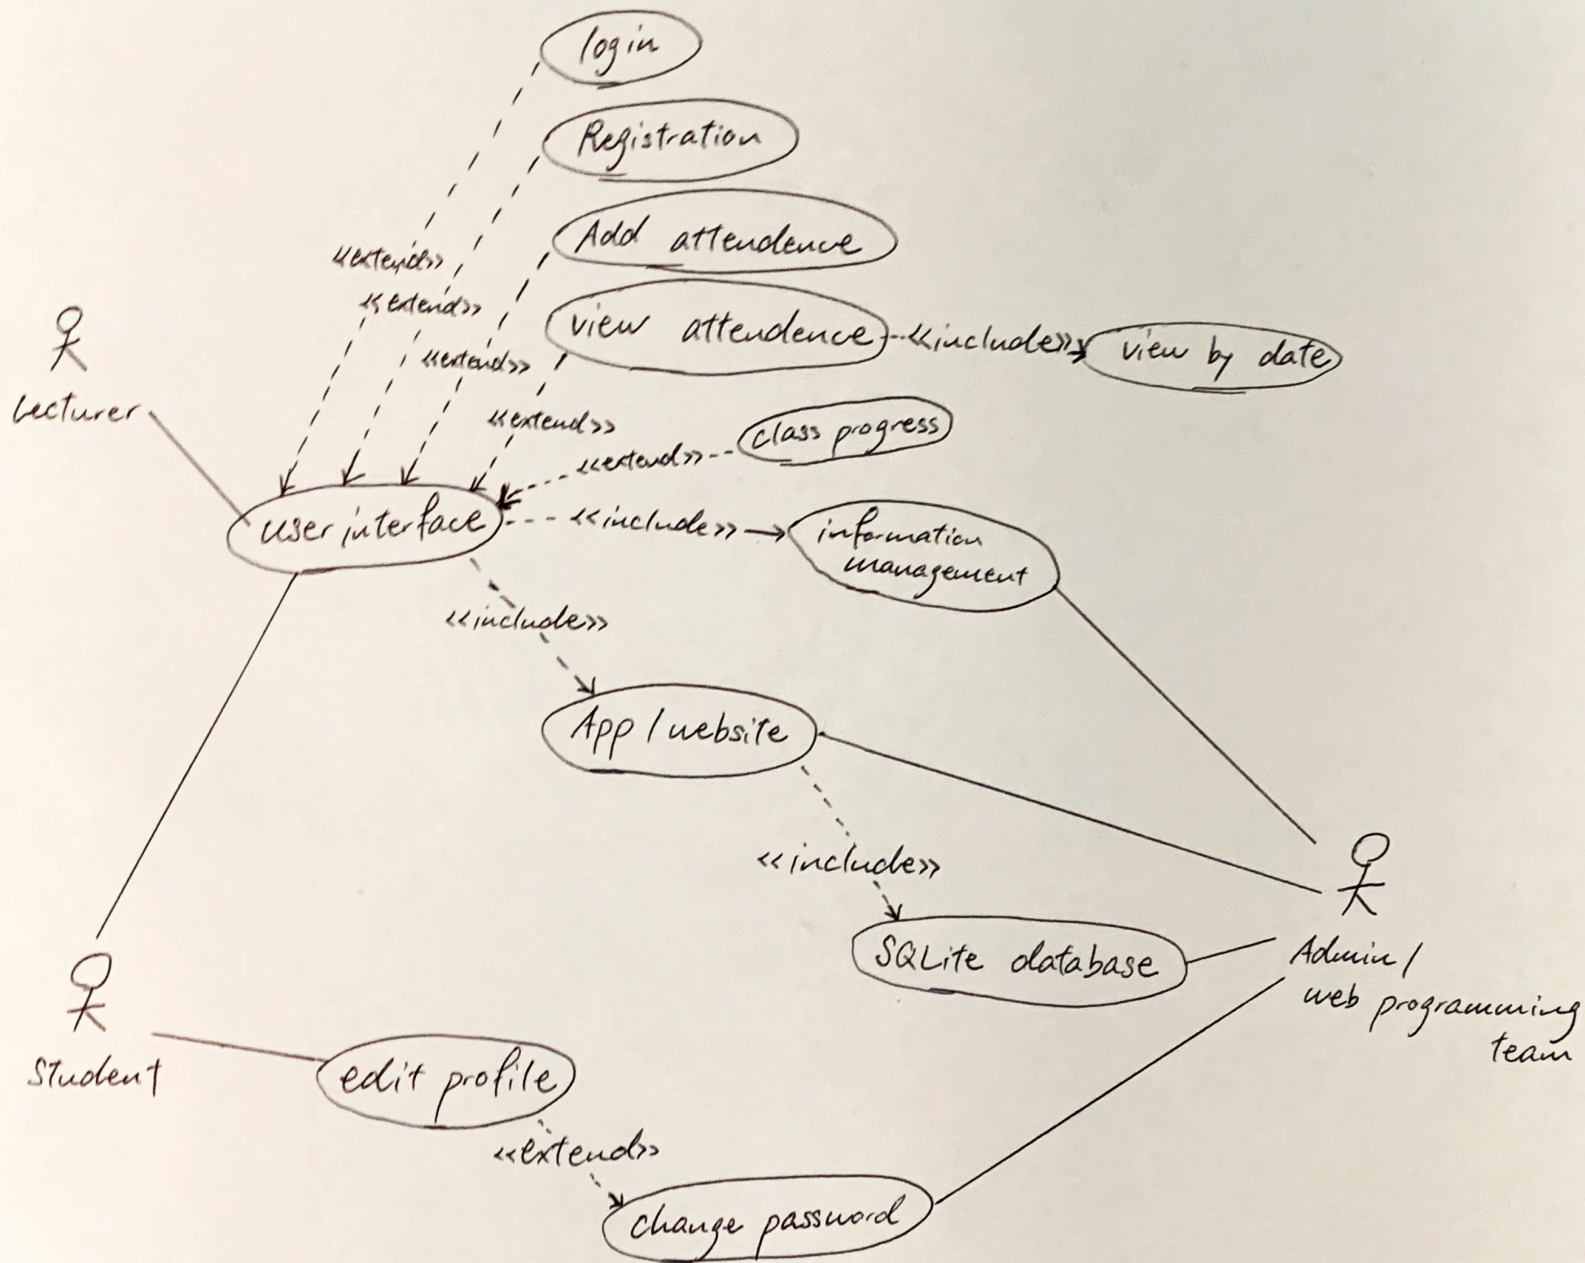 login
Registration
Add attendence
<<extend>>
<<extend>>
view attendence
<<include>>
view by date
<<extend>>
Lecturer
<<extend>>
class progress
<<extend>>
user interface
<<include>>
information
management
<<include>>
App / website
<<include>>
SQLite database
Admin /
web programming
team
Student
edit profile
<<extend>>
change password